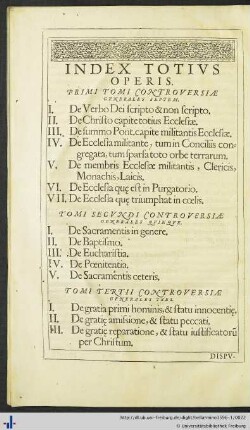 INDEX TOTIVS
OPERIS.
PRIMI TOMI CONTROVERSIÆ
GENERALES SEPTEM.
I. De Verbo Dei scripto & non scripto.
II. De Christo capite totius Ecclesiæ.
III. De summo Pont. capite militantis Ecclesiæ.
IV. De Ecclesia militante, tum in Conciliis con-
gregata, tum sparsa toto orbe terrarum.
V. De membris Ecclesiæ militantis, Clericis,
Monachis, Laicis.
VI. De Ecclesia quę est in Purgatorio.
VII. De Ecclesia quę triumphat in cœlis.
TOMI SECVNDI CONTROVERSIÆ
GENERALES QVINQVE.
I. De Sacramentis in genere.
II. De Baptismo.
III. De Eucharistia.
IV. De Pœnitentia.
V. De Sacramentis ceteris.
TOMI TERTII CONTROVERSIÆ
GENERALES TRES.
I. De gratia primi hominis, & statu innocentię.
II. De gratię amissione, & statu peccati.
III. De gratię reparatione, & statu iustificatorū
per Christum.
DISPV-
© Universitätsbibliothek Freiburg